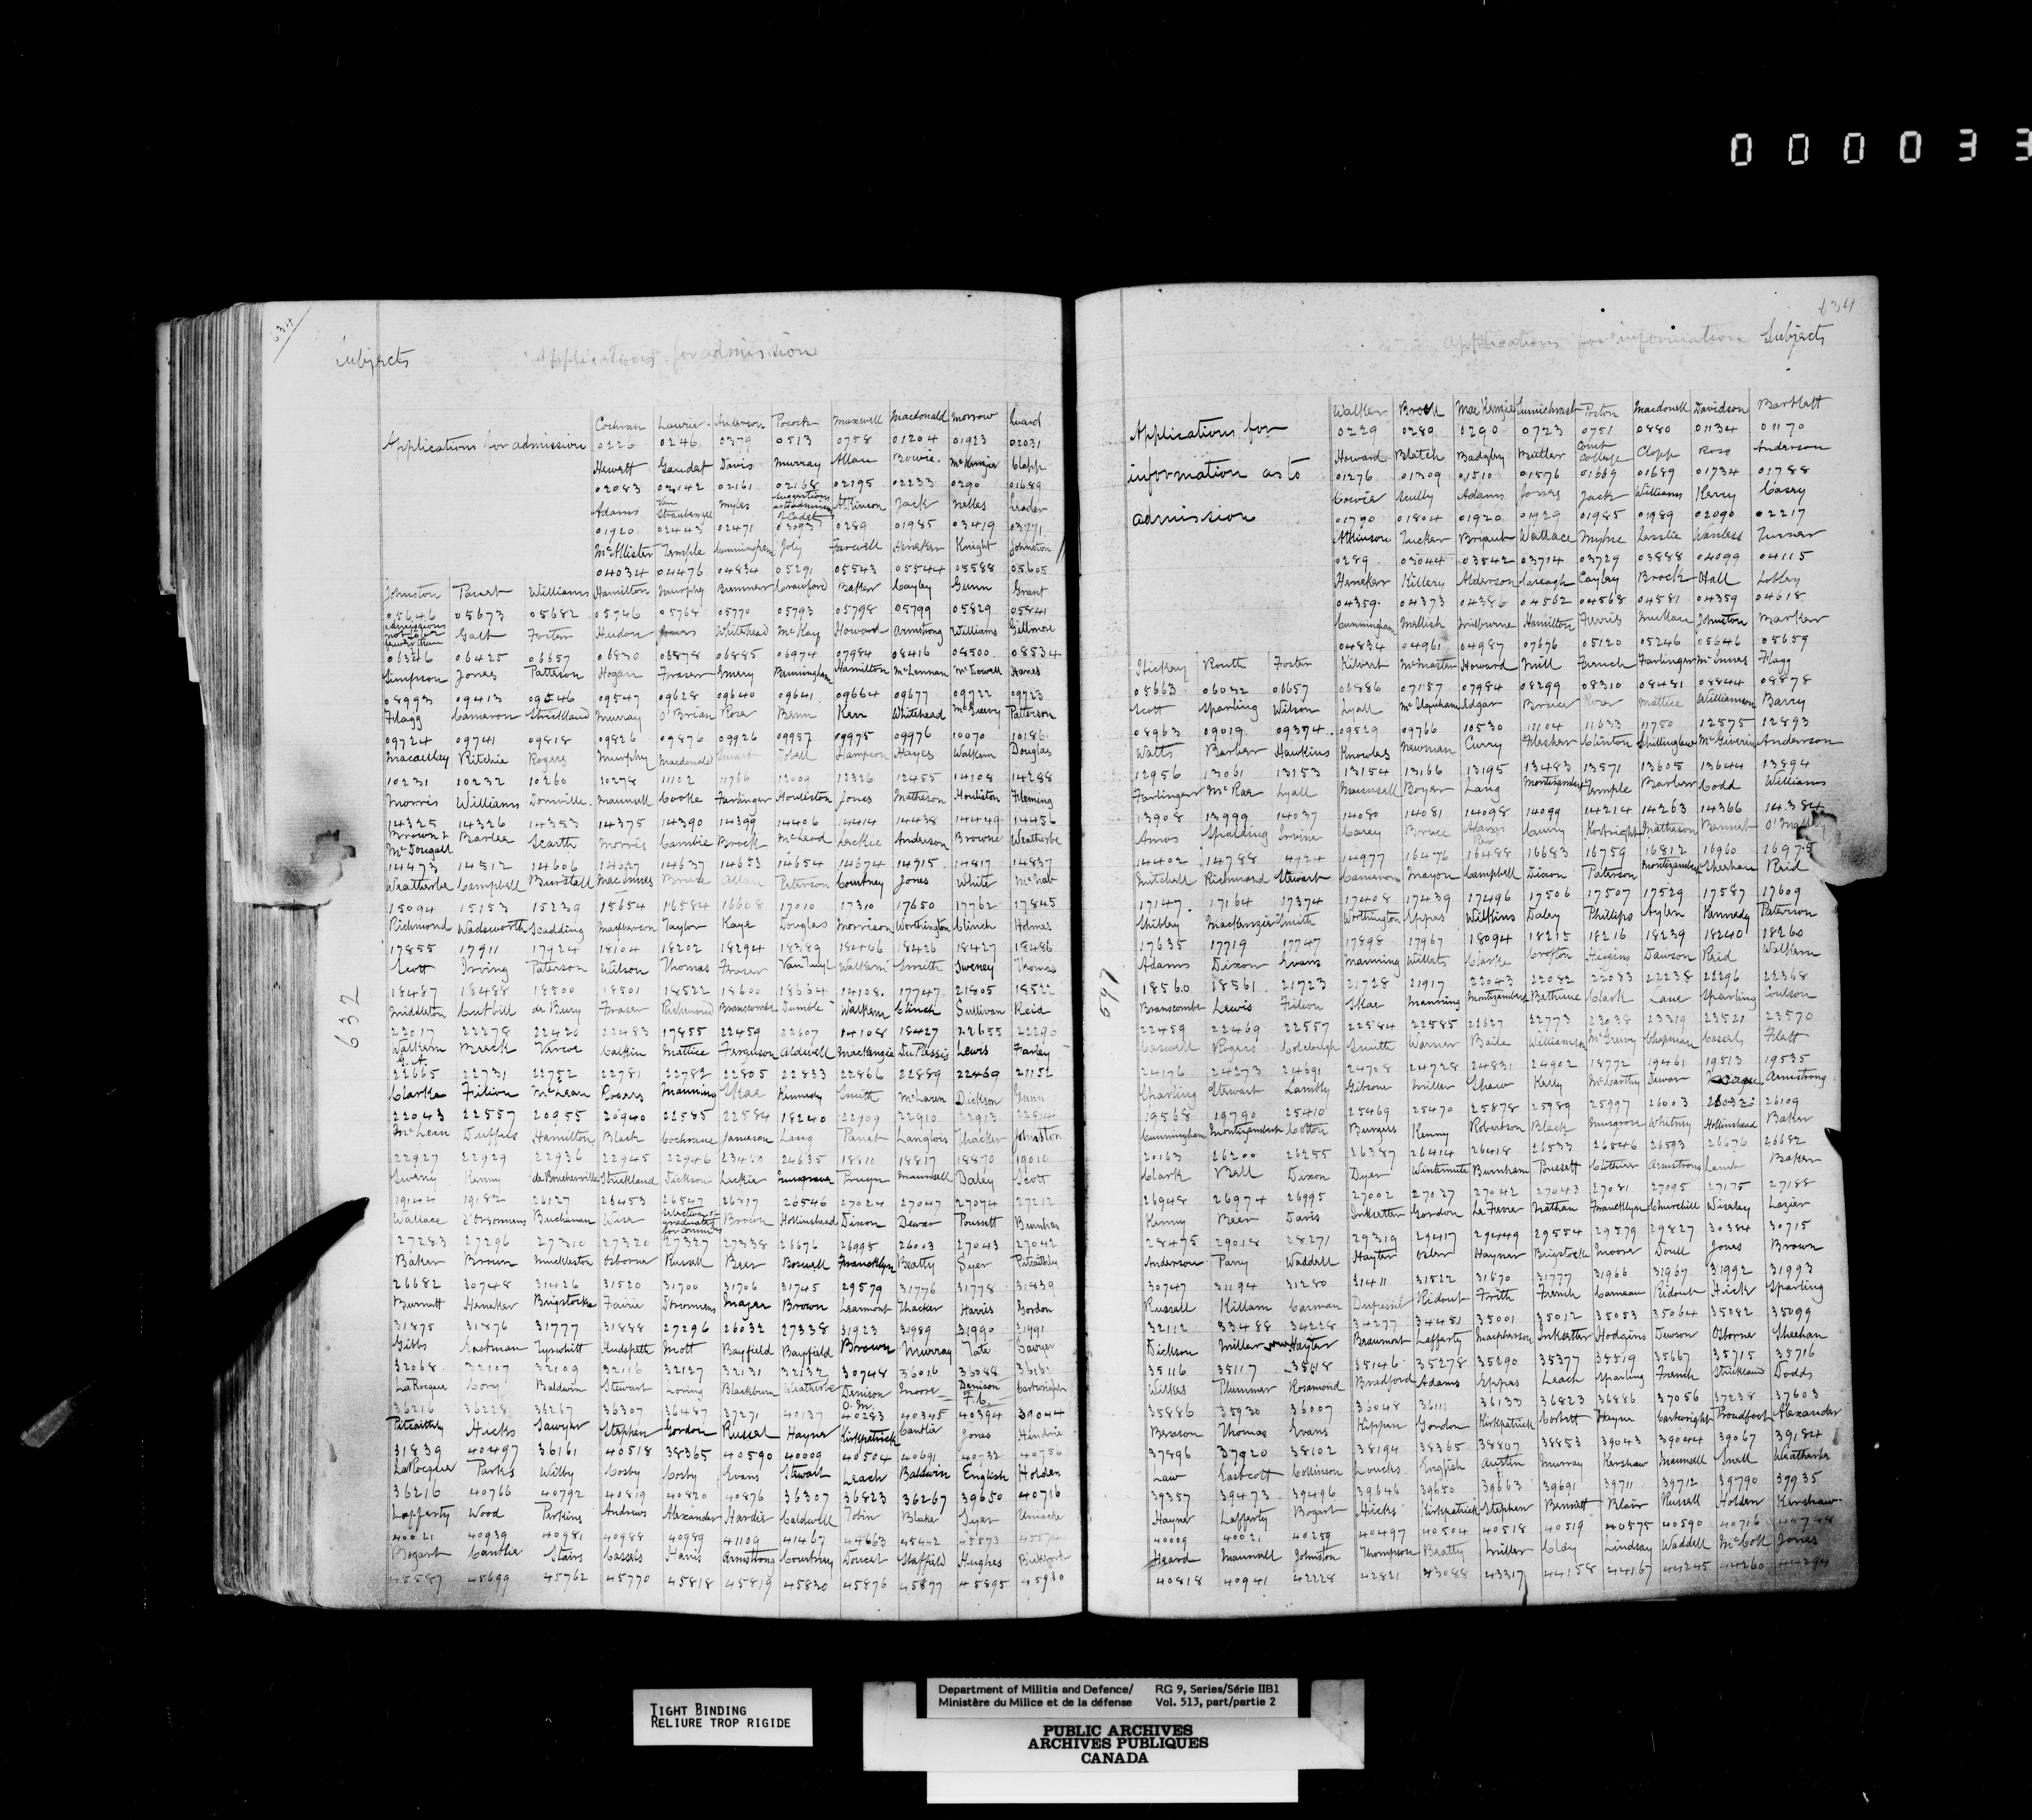 000033
634
Subjects
Applications for admission
Cochran Laurie Anderson Pocock Maxwell Macdonald Morrow Luard
Application for admission 0226 0246 0379 0513 0758 01204 01923 02031
Hewett Gaudet Davis Murray Allan Bowie McKenzie Clapp
02083 02142 02161 02168 02195 02233 0290 01689
Adams Van Straubenzee Myles Suggestions as to admission of Cadets Atkinson Jack Nelles Leader
01920 02443 02471 03093 0289 01985 03419 03771
McAllister Temple Cunningham Joly Farwell Heneker Knight Johnston
04034 04476 04834 05291 05543 05544 05588 05605
Johnston Panet Williams Hamilton Murphy Bremner Crawford Baker Cayley Gunn Grant
05646 05673 05682 05746 05768 05770 05793 05798 05799 05829 05841
Galt Foster Hudon Whitehead McKay Howard Armstrong Williams Gillmore
06346 06425 06657 06830 06878 06885 06974 07984 08416 08500 08534
Simpson Jones Patterson Hogan Fraser Emery Birmingham Hamilton McLennan McDowell Hanes
08993 09413 09546 09547 09628 09640 09641 09664 09677 09722 09723
Flagg Cameron Strickland Murray O'Brian Rose Benn Kerr Whitehead McGreevy Patterson
09724 09741 09818 09826 09876 09926 09957 09975 09976 10070 10186
Macaulay Ritchie Rogers Murphy Macdonald Stuart Hampson Hayes Walkem Douglas
10231 10232 10260 10278 11102 11766 12009 12326 12455 14108 14288
Morris Williams Domville Maunsell Cooke Farlinger Houliston Jones Matheson Houliston Fleming
14325 14326 14353 14375 14390 14399 14406 14414 14438 14449 14456
Brown & McDougall Barlee Scarth Morris Cambie Brock McLeod Leckie Anderson Browne Weatherbe
14473 14512 14606 14627 14637 14653 14654 14674 14915 14817 14837
Weatherbe Campbell Burstall MacInnes Bruce Allan Peterson Courtney Jones White McNab
15094 15153 15239 15654 16584 16608 17010 17310 17650 17762 17845
Richmond Wadsworth Scadding Macpherson Taylor Kaye Douglas Morrison Worthington Clinch Holmes
17855 17911 17924 18104 18202 18294 18389 18406 18426 18427 18486
Scott Irving Paterson Wilson Thomas Fraser Van Tuyl Walkem Smith Sweney Thomas
18487 18488 18500 18501 18522 18600 18664 14108 17747 21805 18522
Middleton Cutbill de Bury Fraser Richmond Branscombe Dumble Walkem Clinch Sullivan Reid
22017 22278 22420 22483 17855 22459 22607 14108 18427 22655 22296
Walkem G.A. Breck Vercoe Calkin Mattice Ferguson Aldwell Mackenzie DuPlessis Lewis Farley
22665 22731 22752 22781 22782 22805 22833 22866 22889 22469 21152
Clarke Filion McLean Rogers Manning Skae Kennedy Smith McLaren Dickson Gunn
22043 22557 20955 20940 22585 22584 18240 22909 22910 22913 22914
McLean Duffus Hamilton Black Cochrane Jameson Lang Panet Langlois Thacker Johnston
22927 22929 22936 22945 22946 23420 24635 18810 18817 18870 19010
Sweny Kenny de Boucherville Strickland Dickson Leckie Musgrave Pruyn Maunsell Daley Scott
19144 19182 26127 26453 26547 26817 26546 27024 27047 27074 27212
Wallace d'Orsonnens Buchanan Wise Selection of graduates for commns Brown Hollinshead Dixon Dewar Poussett Burnham
27283 27296 27310 27320 27327 27338 26676 26995 26003 27043 27042
Baker Brown Muckleston Osborne Russell Beer Boswell Francklyn Beatty Syer Pitcaithly
26682 30748 31426 31520 31700 31706 31745 29579 31776 31778 31839
Burnett Heneker Brigstocke Fairie d'Orsonnens Mazer Brown Learmont Thacker Harris Gordon
31875 31876 31777 31888 27296 26032 27338 31923 31989 31990 31991
Gibbs Eastman Tyrwhitt Hudspeth Mott Bayfield Bayfield Brown Murray Tate Sawyer
32068 32107 32109 32116 32127 32131 32132 30748 36016 36088 36132
LaRocque Cory Baldwin Stewart Loring Blackburn Weatherbe Denison O.M. Moore Denison F.C. Cartwright
36216 36228 36267 36307 36487 37271 40137 40283 40345 40394 39044
Pitcaithly Hicks Sawyer Stephen Gordon Russel Hayner Kirkpatrick Cantlie Jones Hendrie
31839 40497 36161 40518 38365 40590 40009 40504 40691 40732 40756
LaRocque Parks Wilby Cosby Cosby Evans Stewart Leach Baldwin English Holden
36216 40766 40792 40819 40820 40876 36307 36823 36267 39650 40716
Lafferty Wood Perkins Andrews Alexander Hardie Caldwell Tobin Blake Syer Umacke
40021 40939 40981 40988 40989 41109 41467 44663 45442 45573 45574
Bogart Cantlie Stairs Cassels Harris Armstrong Courtney Doucet Staffield Hughes Bickford
45587 45699 45762 45770 45818 45819 45830 45876 45877 45895 45930
632
634
Applications for information Subjects
Walker Brock MacKenzie Poston Macdonell Davidson Bartlett
Applications for 0229 0289 0290 0723 0751 0880 01134 01170
Howard Blatch Badgley Butler Clapp Ross Anderson
information as to 01276 01309 01510 01576 01669 01689 01734 01788
Cowie Scully Adams Jones Jack Williams Kerry Casey
admission 01790 01804 01920 01929 01985 01989 02090 02217
Atkinson Tucker Bryant Wallace Mylne Leslie Wanless Turner
0289 03044 03542 03714 03729 03888 04099 04115
Heneker Hillery Alderson Careagh Cayley Brock Hall Lobley
04359 04373 04386 04562 04568 04581 04359 04618
Cunningham Mellish Milburne Hamilton Ferris McMillan Johnston Barker
04834 04961 04987 07676 05120 05246 05646 05659
Hickey Routh Foster Kilvert McMaster Howard Mill French Farlinger McInnes Flagg
05663 06032 06657 06886 07157 07984 08299 08310 08481 08844 08878
Scott Sparling Wilson Lyall McElenham Edgar Bruce Rose Mattice Williamson Barry
08963 09019 09374 09529 09766 10530 11104 11633 11750 12575 12893
Watts Barber Hawkins Knowles Newman Curry Flesher Clinton Shillinglaw McGiverin Anderson
12956 13061 13153 13154 13166 13195 13483 13571 13605 13644 13894
Farlinger McRae Lyall Maunsell Boyer Lang Montizambert Temple Barber Codd Williams
13908 13999 14037 14080 14081 14098 14099 14214 14263 14366 14384
Amos Spalding Irvine Carey Bruce Adams Curry Kortright Matheson Bennet O'Malley
14402 14788 14924 14977 16476 16488 16683 16759 16812 16960 16975
Mitchell Richmond Stewart Cameron Mayou Campbell Dixon Paterson Montizambert Sheehan Reid
17147 17164 17374 17408 17439 17496 17506 17507 17529 17587 17609
Shibley Mackenzie Smith Worthington Eppes Wilkins Daley Phillips Aylen Kennedy Paterson
17635 17719 17747 17898 17967 18094 18215 18216 18239 18240 18260
Adams Dixon Evans Manning Willets Clarke Crofton Higgins Dawson Reid Walkem
18560 18561 21723 21728 21917 22043 22082 22083 22238 22296 22368
Branscombe Lewis Filion Skae Manning Montizambert Bethune Clark Lane Sparling Coulson
22459 22469 22557 22584 22585 22627 22773 23038 23319 23521 23570
Caswell Rogers Colclough Smith Warner Baile Williamson McGreevy Chapman Cassels Flett
24176 24273 24691 24708 24728 24831 24902 18772 19461 19513 19535
Sparling Stewart Lambly Gibsone Miller Shaw Kelly McCarthy Dewar Armstrong
19568 19790 25410 25469 25470 25878 25989 25997 26003 26032 26109
Cunningham Montizambert Cotton Burgess Kenny Robertson Black Musgrove Whitney Hollinshead Baker
20163 26200 26255 26387 26414 26418 26533 26546 26593 26676 26682
Clark Bell Dixon Dyer Wintemute Burnham Poussett Clothier Armstrong Lamb Baker
26948 26974 26995 27002 27027 27042 27043 27081 27095 27175 27188
Kenny Beer Davis Inksetter Gordon LeFevre Nathan Francklyn Churchill Wiseley Lazier
28475 29018 28271 29319 29417 29449 29554 29579 29827 30384 30715
Anderson Parry Waddell Hayter Osler Hayner Brigstocke Moore Doull Jones Brown
30747 31194 31280 31411 31522 31670 31777 31966 31967 31992 31993
Russell Killam Carman Dufresne Ridout Frith French Carneau Ridout Hick Sparling
32112 33488 34228 34277 34451 35001 35012 35053 35064 35082 35099
Dickson Miller Hayter Beaumont Lafferty Macpherson Inksetter Hodgins Dewson Osborne Sheehan
35116 35117 35118 35146 35278 35290 35377 35519 35667 35715 35716
Wilkes Plummer Rosamond Bradford Adams Eppes Leach Sparling French Strickland Dodds
35886 35930 36007 36048 36111 36133 36823 36886 37056 37238 37603
Benson Thomas Evans Kippen Gordon Kirkpatrick Corbett Hayne Cartwright Proudfoot Alexander
37896 37920 38102 38194 38365 38807 38853 39043 39044 39067 39184
Law Eastcott Collinson Loucks English Austin Murray Kershaw Maunsell Snell Weatherbe
39357 39473 39496 39646 39650 39663 39691 39711 39712 39790 39935
Hayner Lafferty Bogart Hicks Kirkpatrick Stephen Bennett Blair Russell Holden Kershaw
40009 40021 40259 40497 40504 40518 40519 40575 40590 40716 40748
Heard Maunsell Johnston Thompson Beatty Miller Clay Lindsay Waddell McColl Jones
40818 40941 42228 42821 43088 43317 44158 44167 44245 44260 44294
597
TIGHT BINDING
RELIURE TROP RIGIDE
Department of Militia and Defence/ RG 9, Series/Série IIB1
Ministère du Milice et de la défense Vol. 513, part/partie 2
PUBLIC ARCHIVES
ARCHIVES PUBLIQUES
CANADA